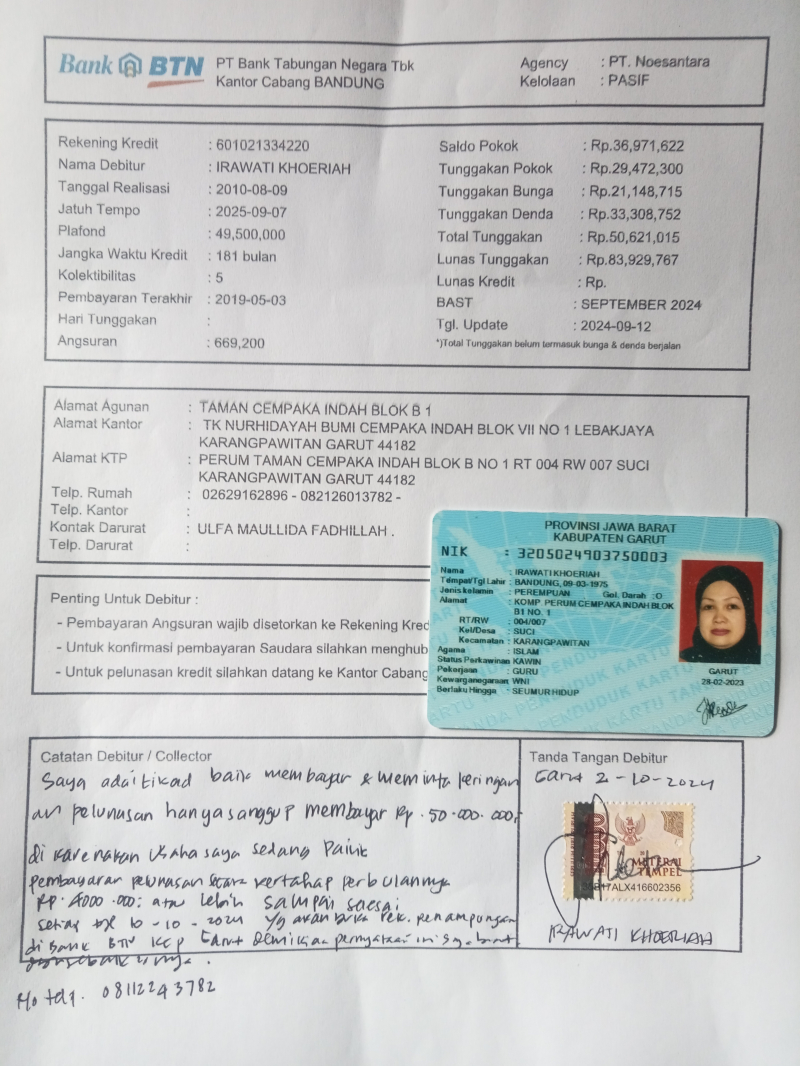 Bank BTN
PT Bank Tabungan Negara Tbk
Kantor Cabang BANDUNG
Agency : PT. Noesantara
Kelolaan : PASIF
Rekening Kredit : 601021334220
Nama Debitur : IRAWATI KHOERIAH
Tanggal Realisasi : 2010-08-09
Jatuh Tempo : 2025-09-07
Plafond : 49,500,000
Jangka Waktu Kredit : 181 bulan
Kolektibilitas : 5
Pembayaran Terakhir : 2019-05-03
Hari Tunggakan :
Angsuran : 669,200
Saldo Pokok : Rp.36,971,622
Tunggakan Pokok : Rp.29,472,300
Tunggakan Bunga : Rp.21,148,715
Tunggakan Denda : Rp.33,308,752
Total Tunggakan : Rp.50,621,015
Lunas Tunggakan : Rp.83,929,767
Lunas Kredit : Rp.
BAST : SEPTEMBER 2024
Tgl. Update : 2024-09-12
*)Total Tunggakan belum termasuk bunga & denda berjalan
Alamat Agunan : TAMAN CEMPAKA INDAH BLOK B 1
Alamat Kantor : TK NURHIDAYAH BUMI CEMPAKA INDAH BLOK VII NO 1 LEBAKJAYA
KARANGPAWITAN GARUT 44182
Alamat KTP : PERUM TAMAN CEMPAKA INDAH BLOK B NO 1 RT 004 RW 007 SUCI
KARANGPAWITAN GARUT 44182
Telp. Rumah : 02629162896 - 082126013782 -
Telp. Kantor :
Kontak Darurat : ULFA MAULLIDA FADHILLAH .
Telp. Darurat :
Penting Untuk Debitur :
- Pembayaran Angsuran wajib disetorkan ke Rekening Kred
- Untuk konfirmasi pembayaran Saudara silahkan menghub
- Untuk pelunasan kredit silahkan datang ke Kantor Cabang
PROVINSI JAWA BARAT
KABUPATEN GARUT
NIK : 3205024903750003
Nama : IRAWATI KHOERIAH
Tempat/Tgl Lahir : BANDUNG, 09-03-1975
Jenis kelamin : PEREMPUAN Gol. Darah :O
Alamat : KOMP PERUM CEMPAKA INDAH BLOK
B1 NO. 1
RT/RW : 004/007
Kel/Desa : SUCI
Kecamatan : KARANGPAWITAN
Agama : ISLAM
Status Perkawinan: KAWIN
Pekerjaan : GURU
Kewarganegaraan: WNI
Berlaku Hingga : SEUMUR HIDUP
GARUT
28-02-2023
Catatan Debitur / Collector
Saya ada itikad baik membayar & meminta keringan
an pelunasan hanya sanggup membayar Rp. 50.000.000,-
di karenakan Usaha saya sedang Pailit
pembayaran pelunasan secara bertahap perbulannya
Rp. 4000.000; atau lebih sampai selesai
setiap tgl 10-10-2024 yg akan buka rek. penampungan
di Bank BTN KCP Garut Demikian pernyataan ini saya buat
No telp. 08112243782
Tanda Tangan Debitur
Garut 2-10-2024
METERAI
TEMPEL
17ALX416602356
IRAWATI KHOERIAH